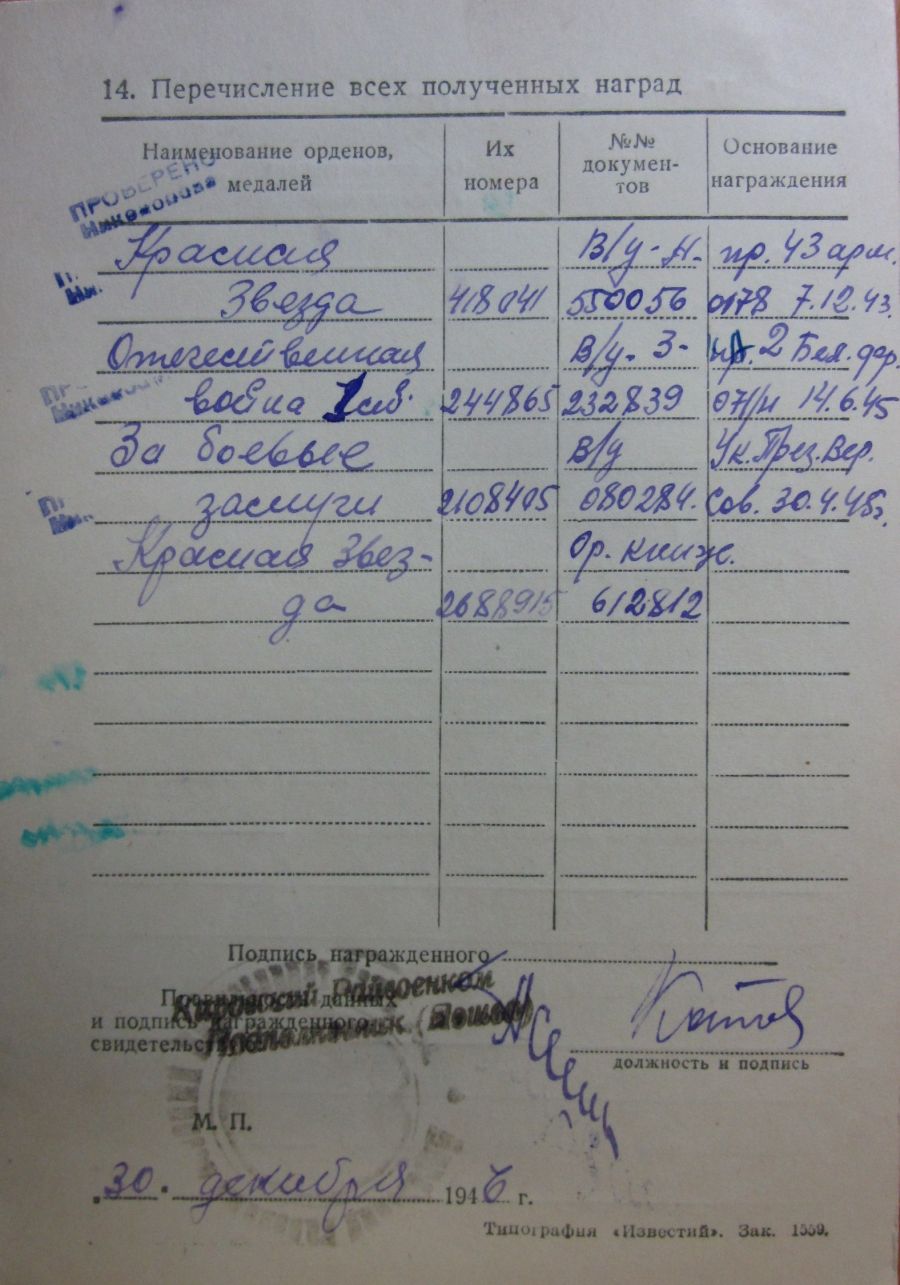 14. Перечисление всех полученных наград
Наименование орденов, медалей
Их номера
№№ докумен-
тов
Основание награждения
ПРОВЕРЕНО
Красная В/у-А- пр. 43 арм.
Звезда 418041 550056 0178 7.12.43.
Отечественная В/у- З- пр. 2 Бел. фр.
война 1 ст. 244865 232839 07/н 14.6.45
За боевые В/у Ук. През. Вер.
заслуги 2108405 080284. Сов. 30.4.45г.
Красная Звез- Ор. книж.
да 2688915 612812
Подпись награжденного
Правильность данных
и подпись награжденного
свидетельствую
Кировский Райвоенком
Подполковник
должность и подпись
М. П.
30. декабря 1946 г.
Типография «Известий». Зак. 1559.